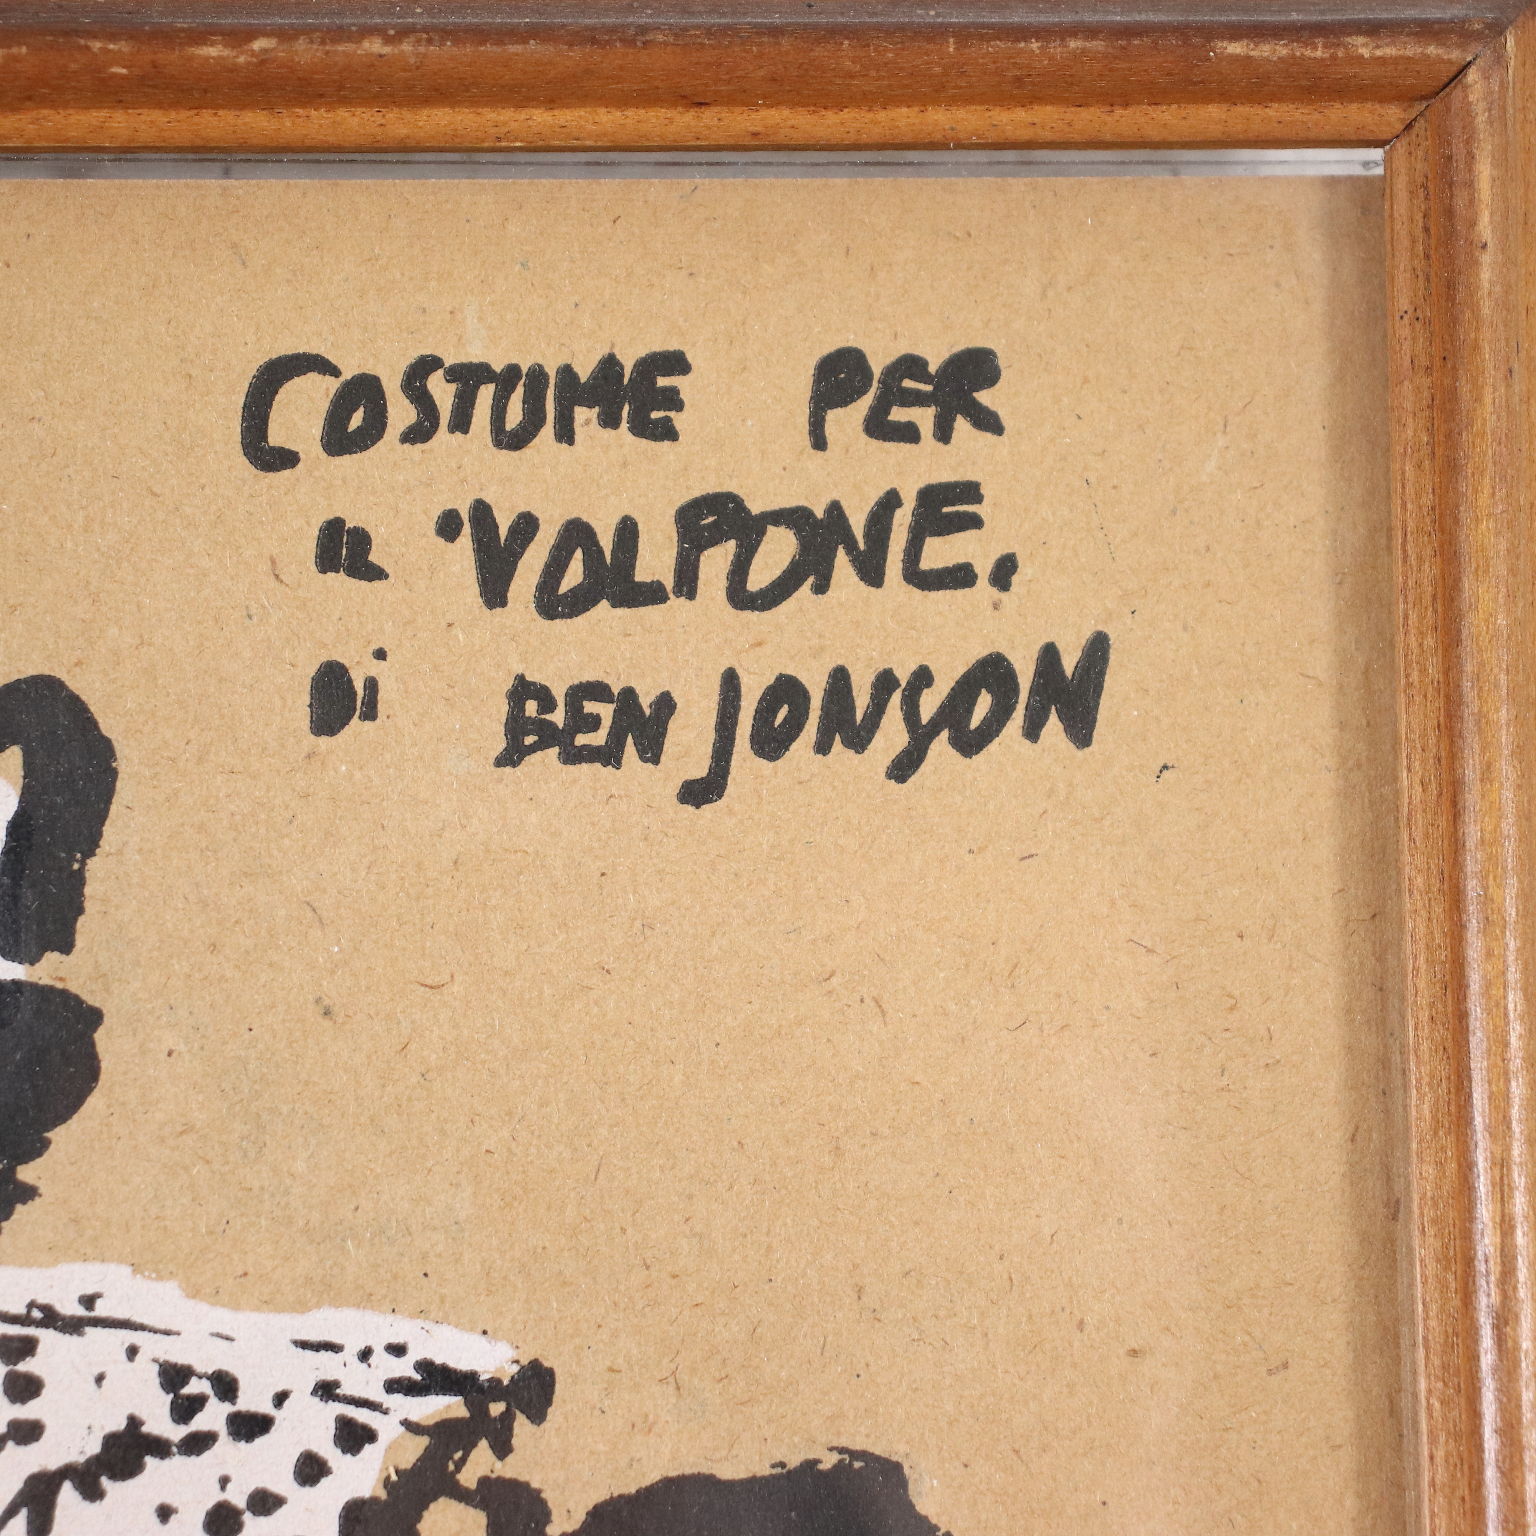 COSTUME PER
IL 'VOLPONE.
Di BEN JONSON